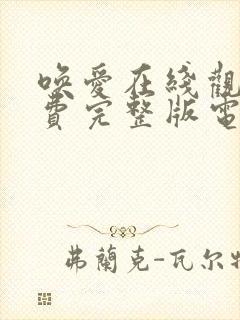 喚愛在綫觀
費完整版電
弗蘭克-瓦尔特